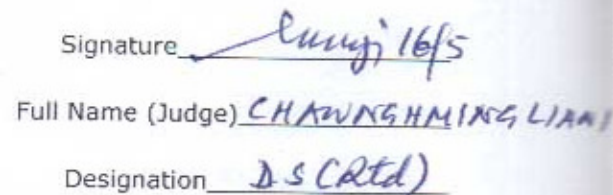 Signature 16/5
Full Name (Judge) CHAWNGHMINGLIANI
Designation DS (Rtd)